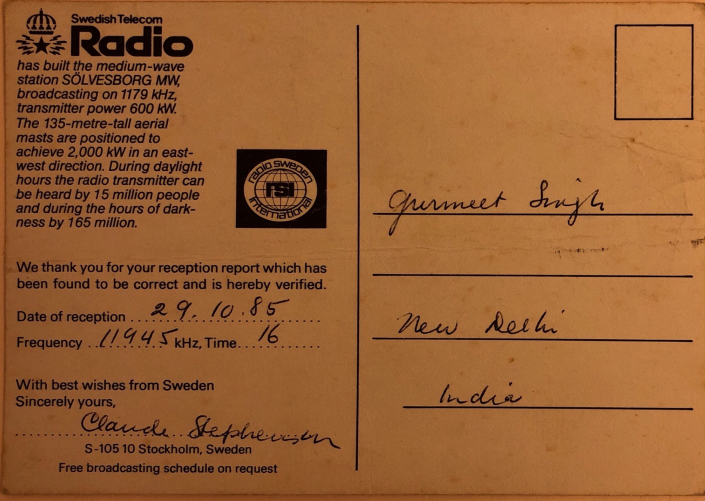 Swedish Telecom
Radio
has built the medium-wave
station SÖLVESBORG MW,
broadcasting on 1179 kHz,
transmitter power 600 kW.
The 135-metre-tall aerial
masts are positioned to
achieve 2,000 kW in an east-
west direction. During daylight
hours the radio transmitter can
be heard by 15 million people
and during the hours of dark-
ness by 165 million.
radio sweden
rsi
international
We thank you for your reception report which has
been found to be correct and is hereby verified.
Date of reception 29.10.85
Frequency 11945 kHz, Time 16
With best wishes from Sweden
Sincerely yours,
Claude Stephenson
S-105 10 Stockholm, Sweden
Free broadcasting schedule on request
Gurmeet Singh
New Delhi
India